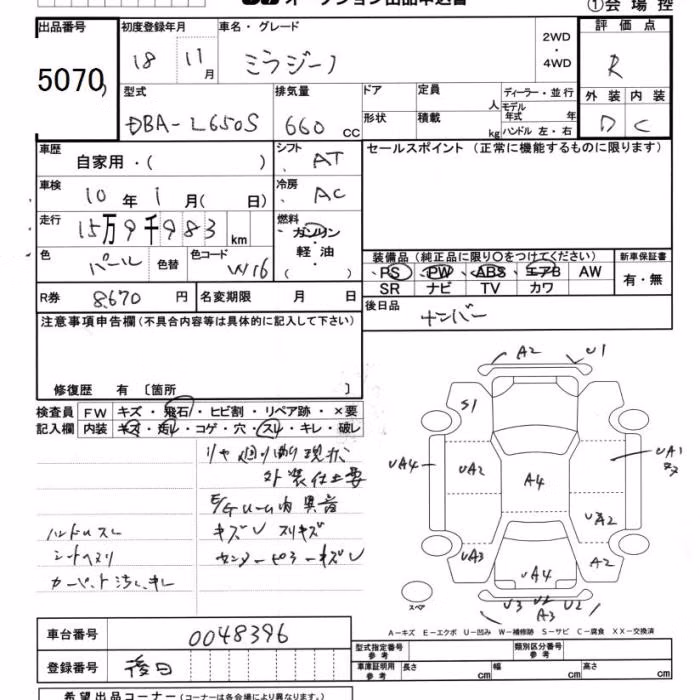 オークション出品申込書
①会場控
出品番号 初度登録年月 車名・グレード 2WD・4WD 評価点
5070 18 11月 ミラジーノ R
型式 排気量 ドア 定員 人 ディーラー・並行 外装 内装
DBA-L650S 660 cc 形状 積載 kg モデル年式 年 ハンドル 左・右 D C
車歴 自家用・( ) シフト AT セールスポイント (正常に機能するものに限ります)
車検 10年 1月( 日) 冷房 AC
走行 15万9千983km 燃料 ガソリン・軽油・( )
色 パール 色替 色コード W16
装備品 (純正品に限り○をつけてください) 新車保証書
PS PW ABS エアB AW 有・無
SR ナビ TV カワ
R券 8670円 名変期限 月 日 後日品
ナンバー
注意事項申告欄(不具合内容等は具体的に記入して下さい)
修復歴 有 〔箇所 〕
検査員 FW キズ・飛石・ヒビ割・リペア跡・×要
記入欄 内装 キズ・汚レ・コゲ・穴・スレ・キレ・破レ
外装仕上要
E/Gルーム内異音
ハンドルスレ キズU スリキズ
シートヘタリ センターピラーキズU
A2 U1
S1
UA4 UA2 A4 UA1
UA2
UA3 UA4 A2
U3 U2 U2
A3
スペア
A-キズ E-エクボ U-凹み W-補修跡 S-サビ C-腐食 XX-交換済
車台番号 0048396
登録番号 後日
型式指定番号 参考 類別区分番号
車庫証明用 参考 長さ cm 幅 cm 高さ cm
希望出品コーナー(コーナーは各会場により異なります)